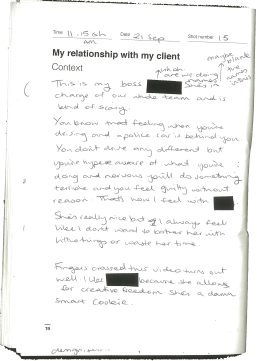 Time 11.15ish AM Date 21 Sep Shot number 15
My relationship with my client
Context
maybe
uhoh
are we doing
names?
the
names
This is my boss She's in
charge of our whole team and is
kind of scary.
You know that feeling when you're
driving and a police car is behind you.
You don't drive any different but
you're hyper aware of what you're
doing and nervous you'll do something
terrible and you feel guilty without
reason. That's how I feel with
She's really nice but I always feel
like I don't want to bother her with
little things or waste her time.
Fingers crossed this video turns out
well. I like because she allows
for creative freedom. She's a damn
smart cookie.